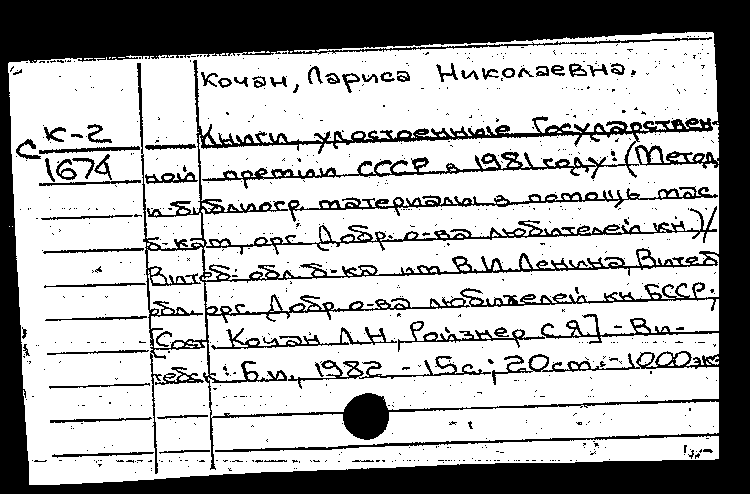 Кочан, Лариса Николаевна.
К-2
Книги, удостоенные Государствен-
С
1674
ной премии СССР в 1981 году: (Метод.
и библиогр материалы в помощь мас.
б-кам, орг. Добр. о-ва любителей кн.)/
Витеб. обл. б-ка им В.И. Ленина, Витеб
обл. орг. Добр. о-ва любителей кн. БССР;
[Сост. Кочан Л.Н., Ройзнер С.Я]. - Ви-
тебск: Б.и., 1982. - 15с.; 20см. - 1000 эк